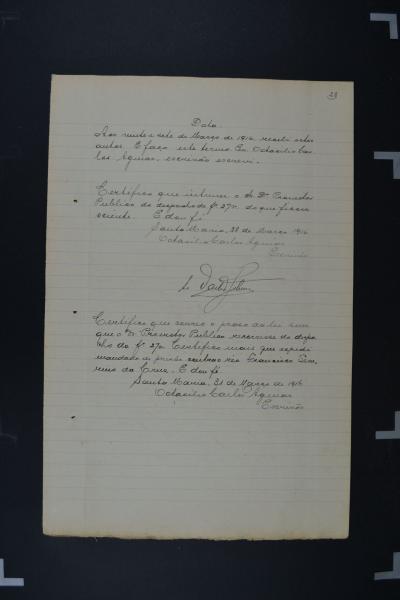 28
Data.
Aos vinte e sete de Março de 1916 recebi estes
autos. E faço este termo. Eu, Octacilio Car-
los Aguiar, escrivão escrevi.
Certifico que intimei o Sr. Dr. Promotor
Publico do despacho de fs 27v. do que ficou
sciente. E dou fé.
Santa Maria, 28 de Março 1916
Octacilio Carlos Aguiar
Escrivão
Certifico que correu o praso da lei sem
que o Dr. Promotor Publico recorresse do despa-
cho de fs. 27v. Certifico mais que expedi
mandado de prisão contra o réo Francisco
da Cruz. E dou fé.
Santa Maria, 31 de Março de 1916
Octacilio Carlos Aguiar
Escrivão